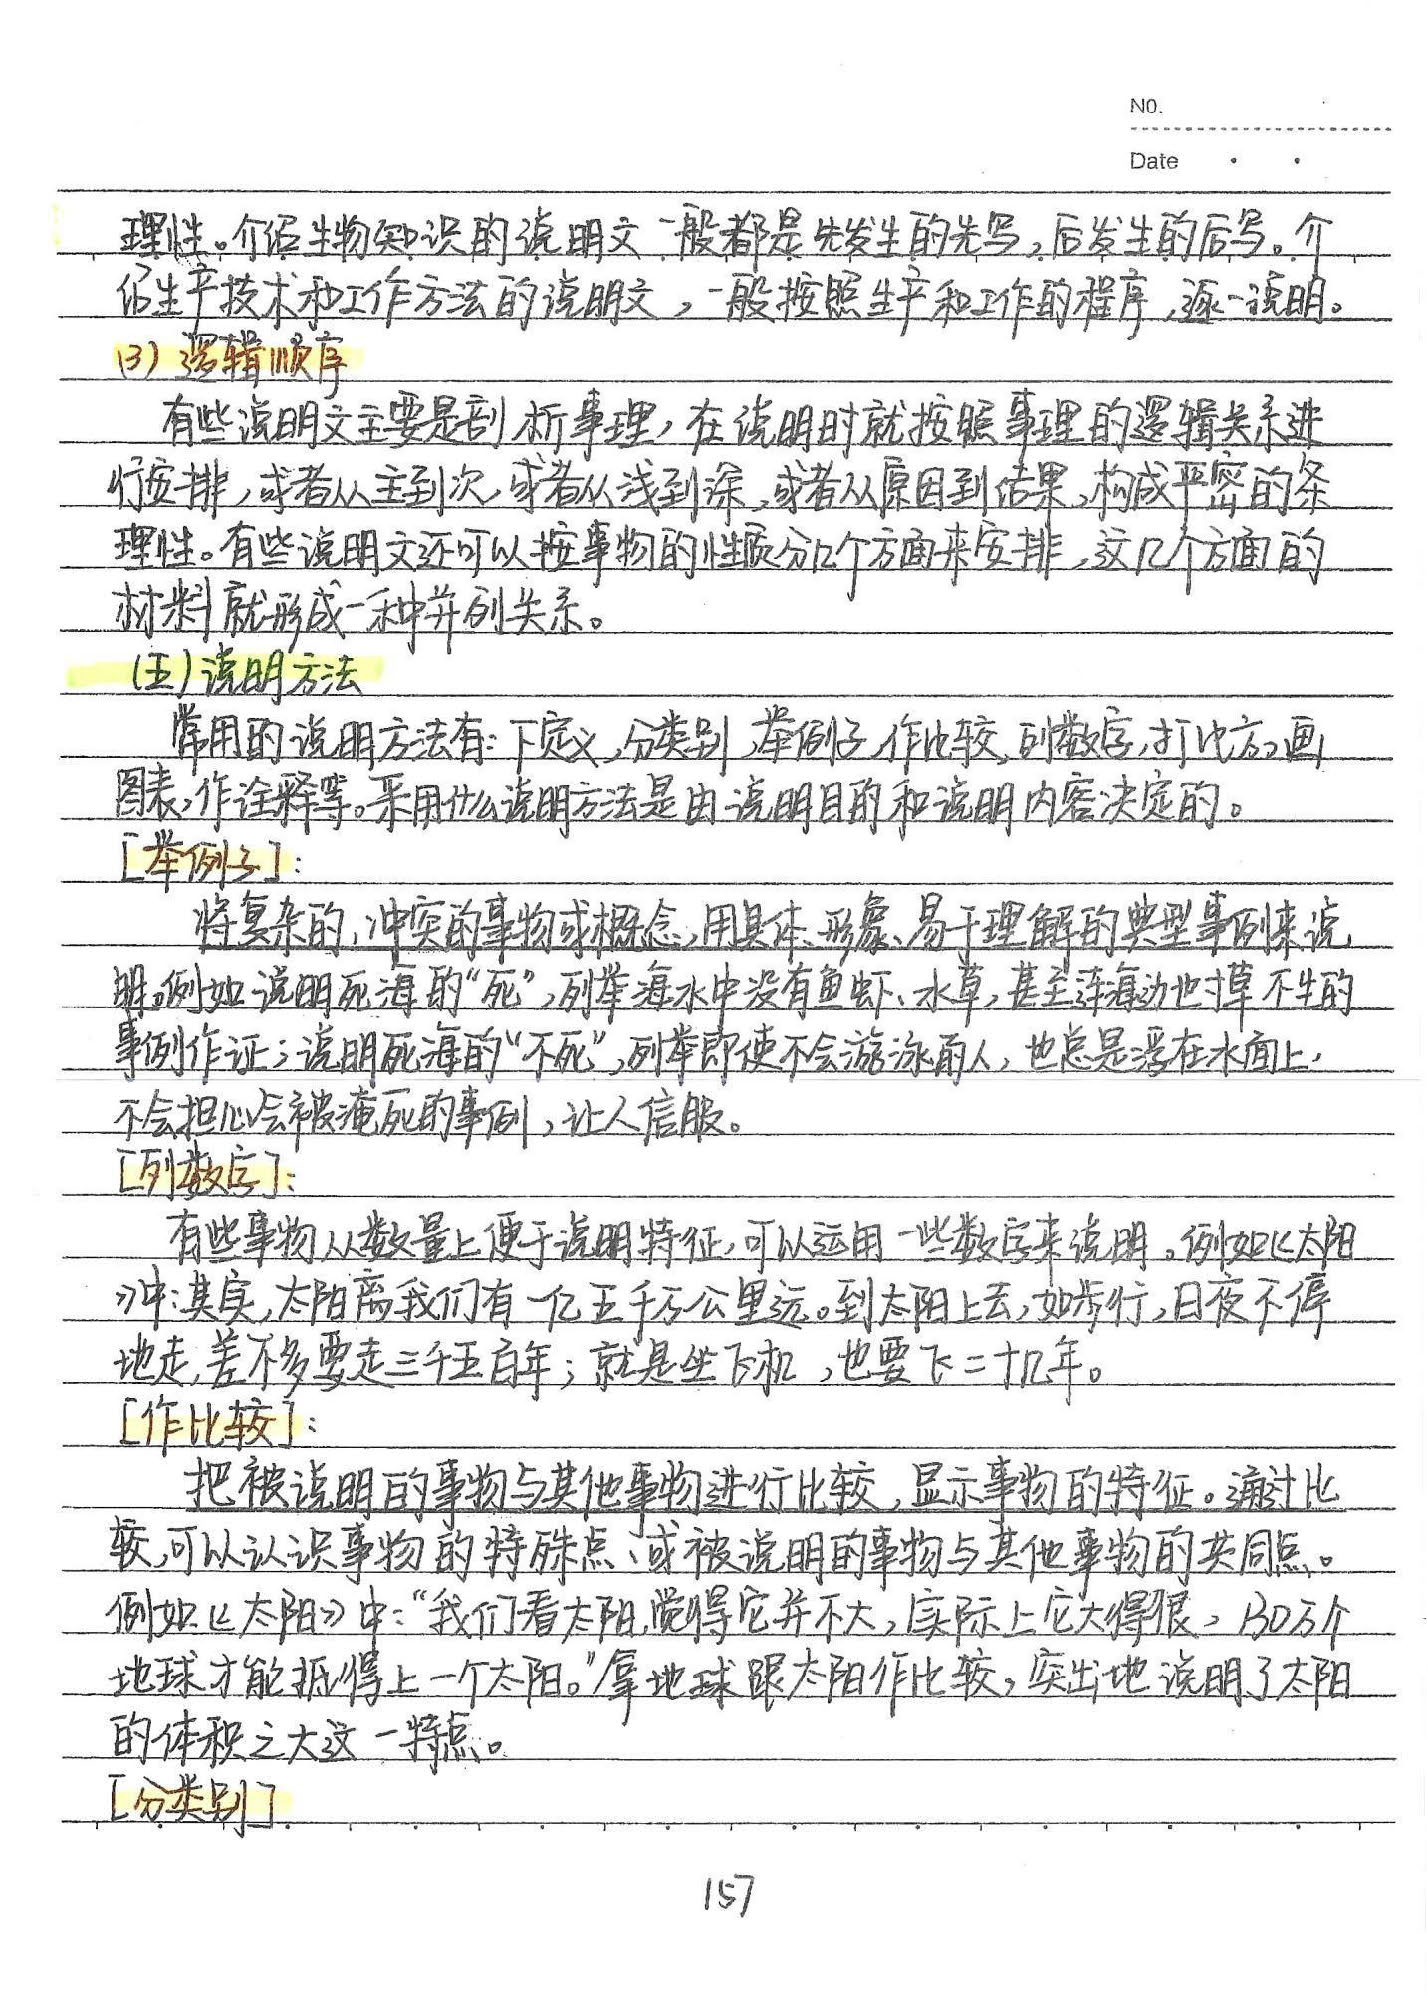 NO.
Date
理性。介绍生物知识的说明文一般都是先发生的先写,后发生的后写。介
绍生产技术和工作方法的说明文,一般按照生产和工作的程序,逐一说明。
(3) 逻辑顺序
有些说明文主要是剖析事理,在说明时就按照事理的逻辑关系进
行安排,或者从主到次,或者从浅到深,或者从原因到结果,构成严密的条
理性。有些说明文还可以按事物的性质分几个方面来安排,这几个方面的
材料就形成一种并列关系。
(五)说明方法
常用的说明方法有:下定义,分类别,举例子,作比较,列数字,打比方,画
图表,作诠释等。采用什么说明方法是由说明目的和说明内容决定的。
[举例子]:
将复杂的,冲突的事物或概念,用具体、形象、易于理解的典型事例来说
明。例如说明死海的“死”,列举海水中没有鱼虾、水草,甚至连海边也寸草不生的
事例作证;说明死海的“不死”,列举即使不会游泳的人,也总是浮在水面上,
不会担心会被淹死的事例,让人信服。
[列数字]:
有些事物从数量上便于说明特征,可以运用一些数字来说明。例如《太阳
》中:其实,太阳离我们有一亿五千万公里远。到太阳上去,如步行,日夜不停
地走,差不多要走三千五百年;就是坐飞机,也要飞二十几年。
[作比较]:
把被说明的事物与其他事物进行比较,显示事物的特征。通过比
较,可以认识事物的特殊点、或被说明的事物与其他事物的共同点。
例如《太阳》中:“我们看太阳,觉得它并不大,实际上它大得很,130万个
地球才能抵得上一个太阳。”拿地球跟太阳作比较,突出地说明了太阳
的体积之大这一特点。
[分类别]
157